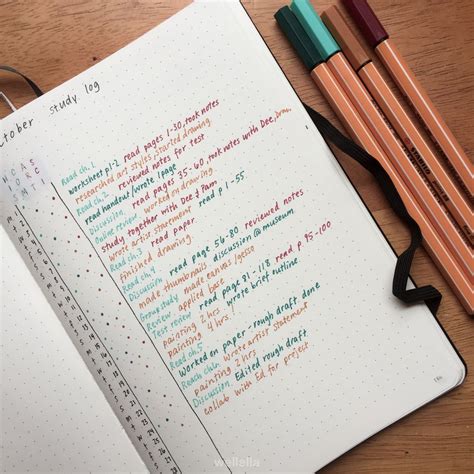 ctober study log
H C A S
S R C
S M T I
Read ch. 1
worksheet p1-2 read pages 1-30, took notes
researched art styles, started drawing
Read ch. 2 reviewed notes for test
read handout/wrote 1 page
Discussion, read pages 35-60, took notes with Dee, Pam
Online review worked on drawing
study together with Dee & Pam
wrote artist statement read p 1-55
Read ch. 3 read paper
finished drawing
Read ch. 4 read page 56-80 reviewed notes
made thumbnails discussion @ museum
Group study made canvas/gesso
Review applied base read p 95-100
Test review read pages 91-118
painting 2 hrs wrote brief outline
painting 4 hrs!
Read ch. 5
Worked on paper - rough draft done
Reach ch Wrote artist statement
painting 2 hrs
Discussion, Edited rough draft
collab with Ed for project
stabilo
wellella